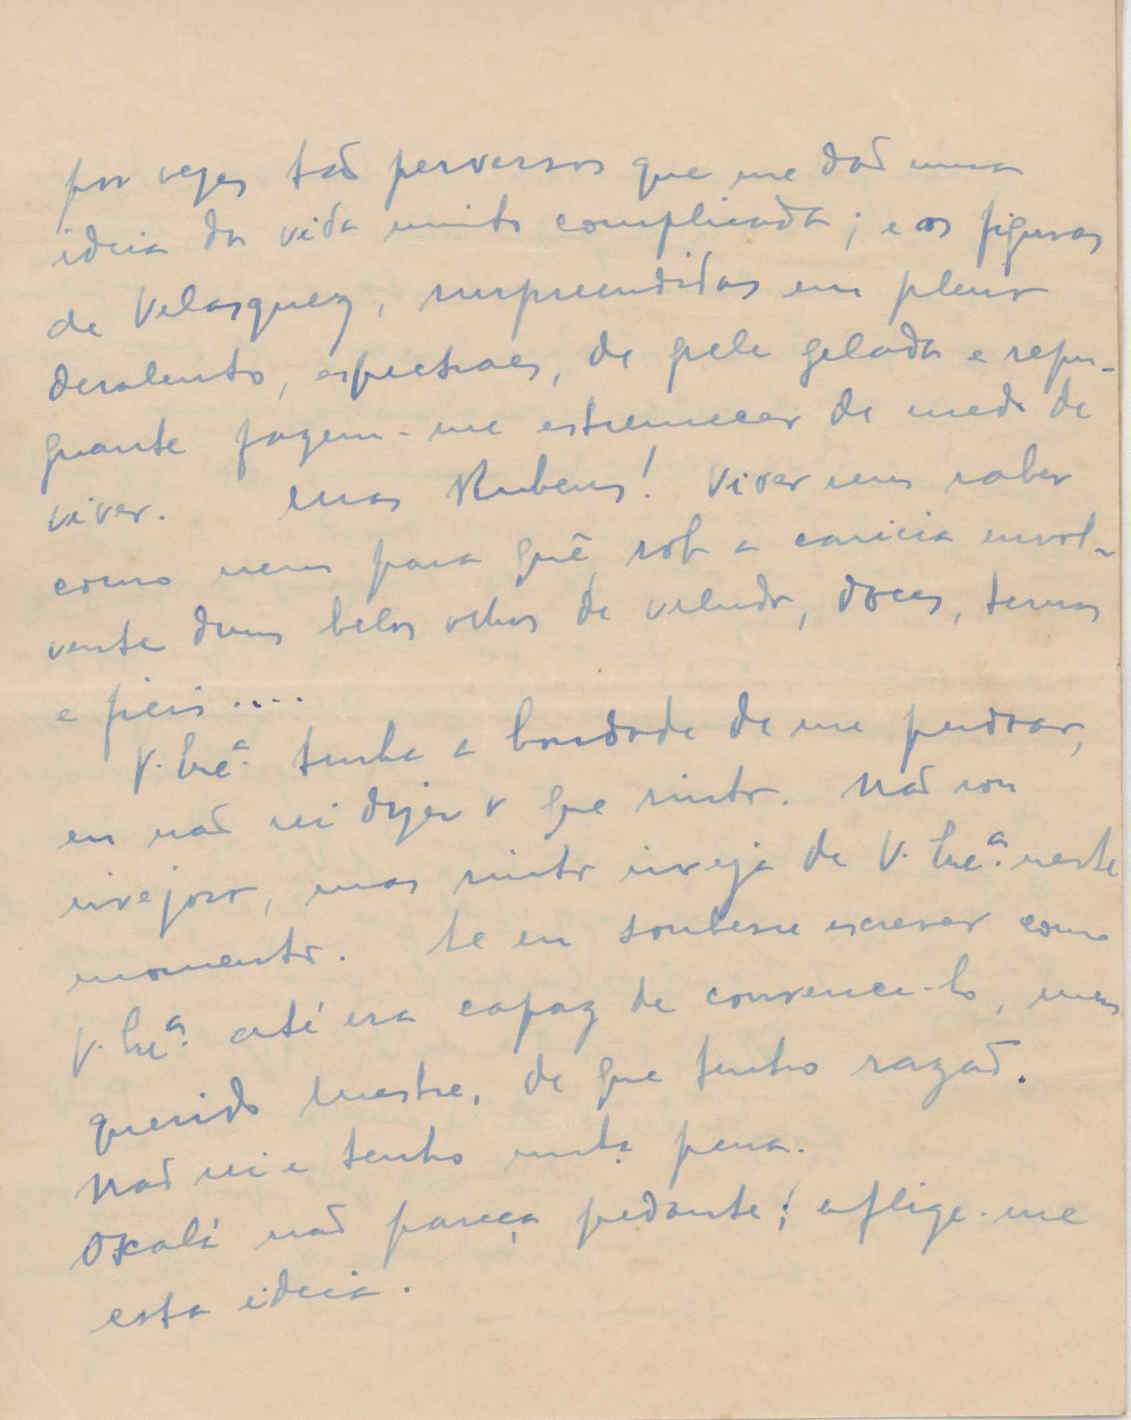 por vezes tão perversos que me dão uma
ideia da vida muito complicada; e as figuras
de Velasquez, surpreendidas em pleno
desalento, espectraes, de pele gelada e repu-
gnante fazem-me estremecer de medo de
viver. Mas Rubens! Viver sem saber
como nem para quê sob a caricia envol-
vente duns belos olhos de veludo, doces, ternos
e fieis....
V. Exc.ª tenha a bondade de me perdoar,
eu não sei dizer o que sinto. Não sou
invejoso, mas sinto inveja de V. Exc.ª neste
momento. Se eu soubesse escrever como
V. Exc.ª até era capaz de convence-lo, meu
querido Mestre, de que tenho razão.
Não sei e tenho muita pena.
Oxalá não pareça pedante; aflige-me
esta ideia.